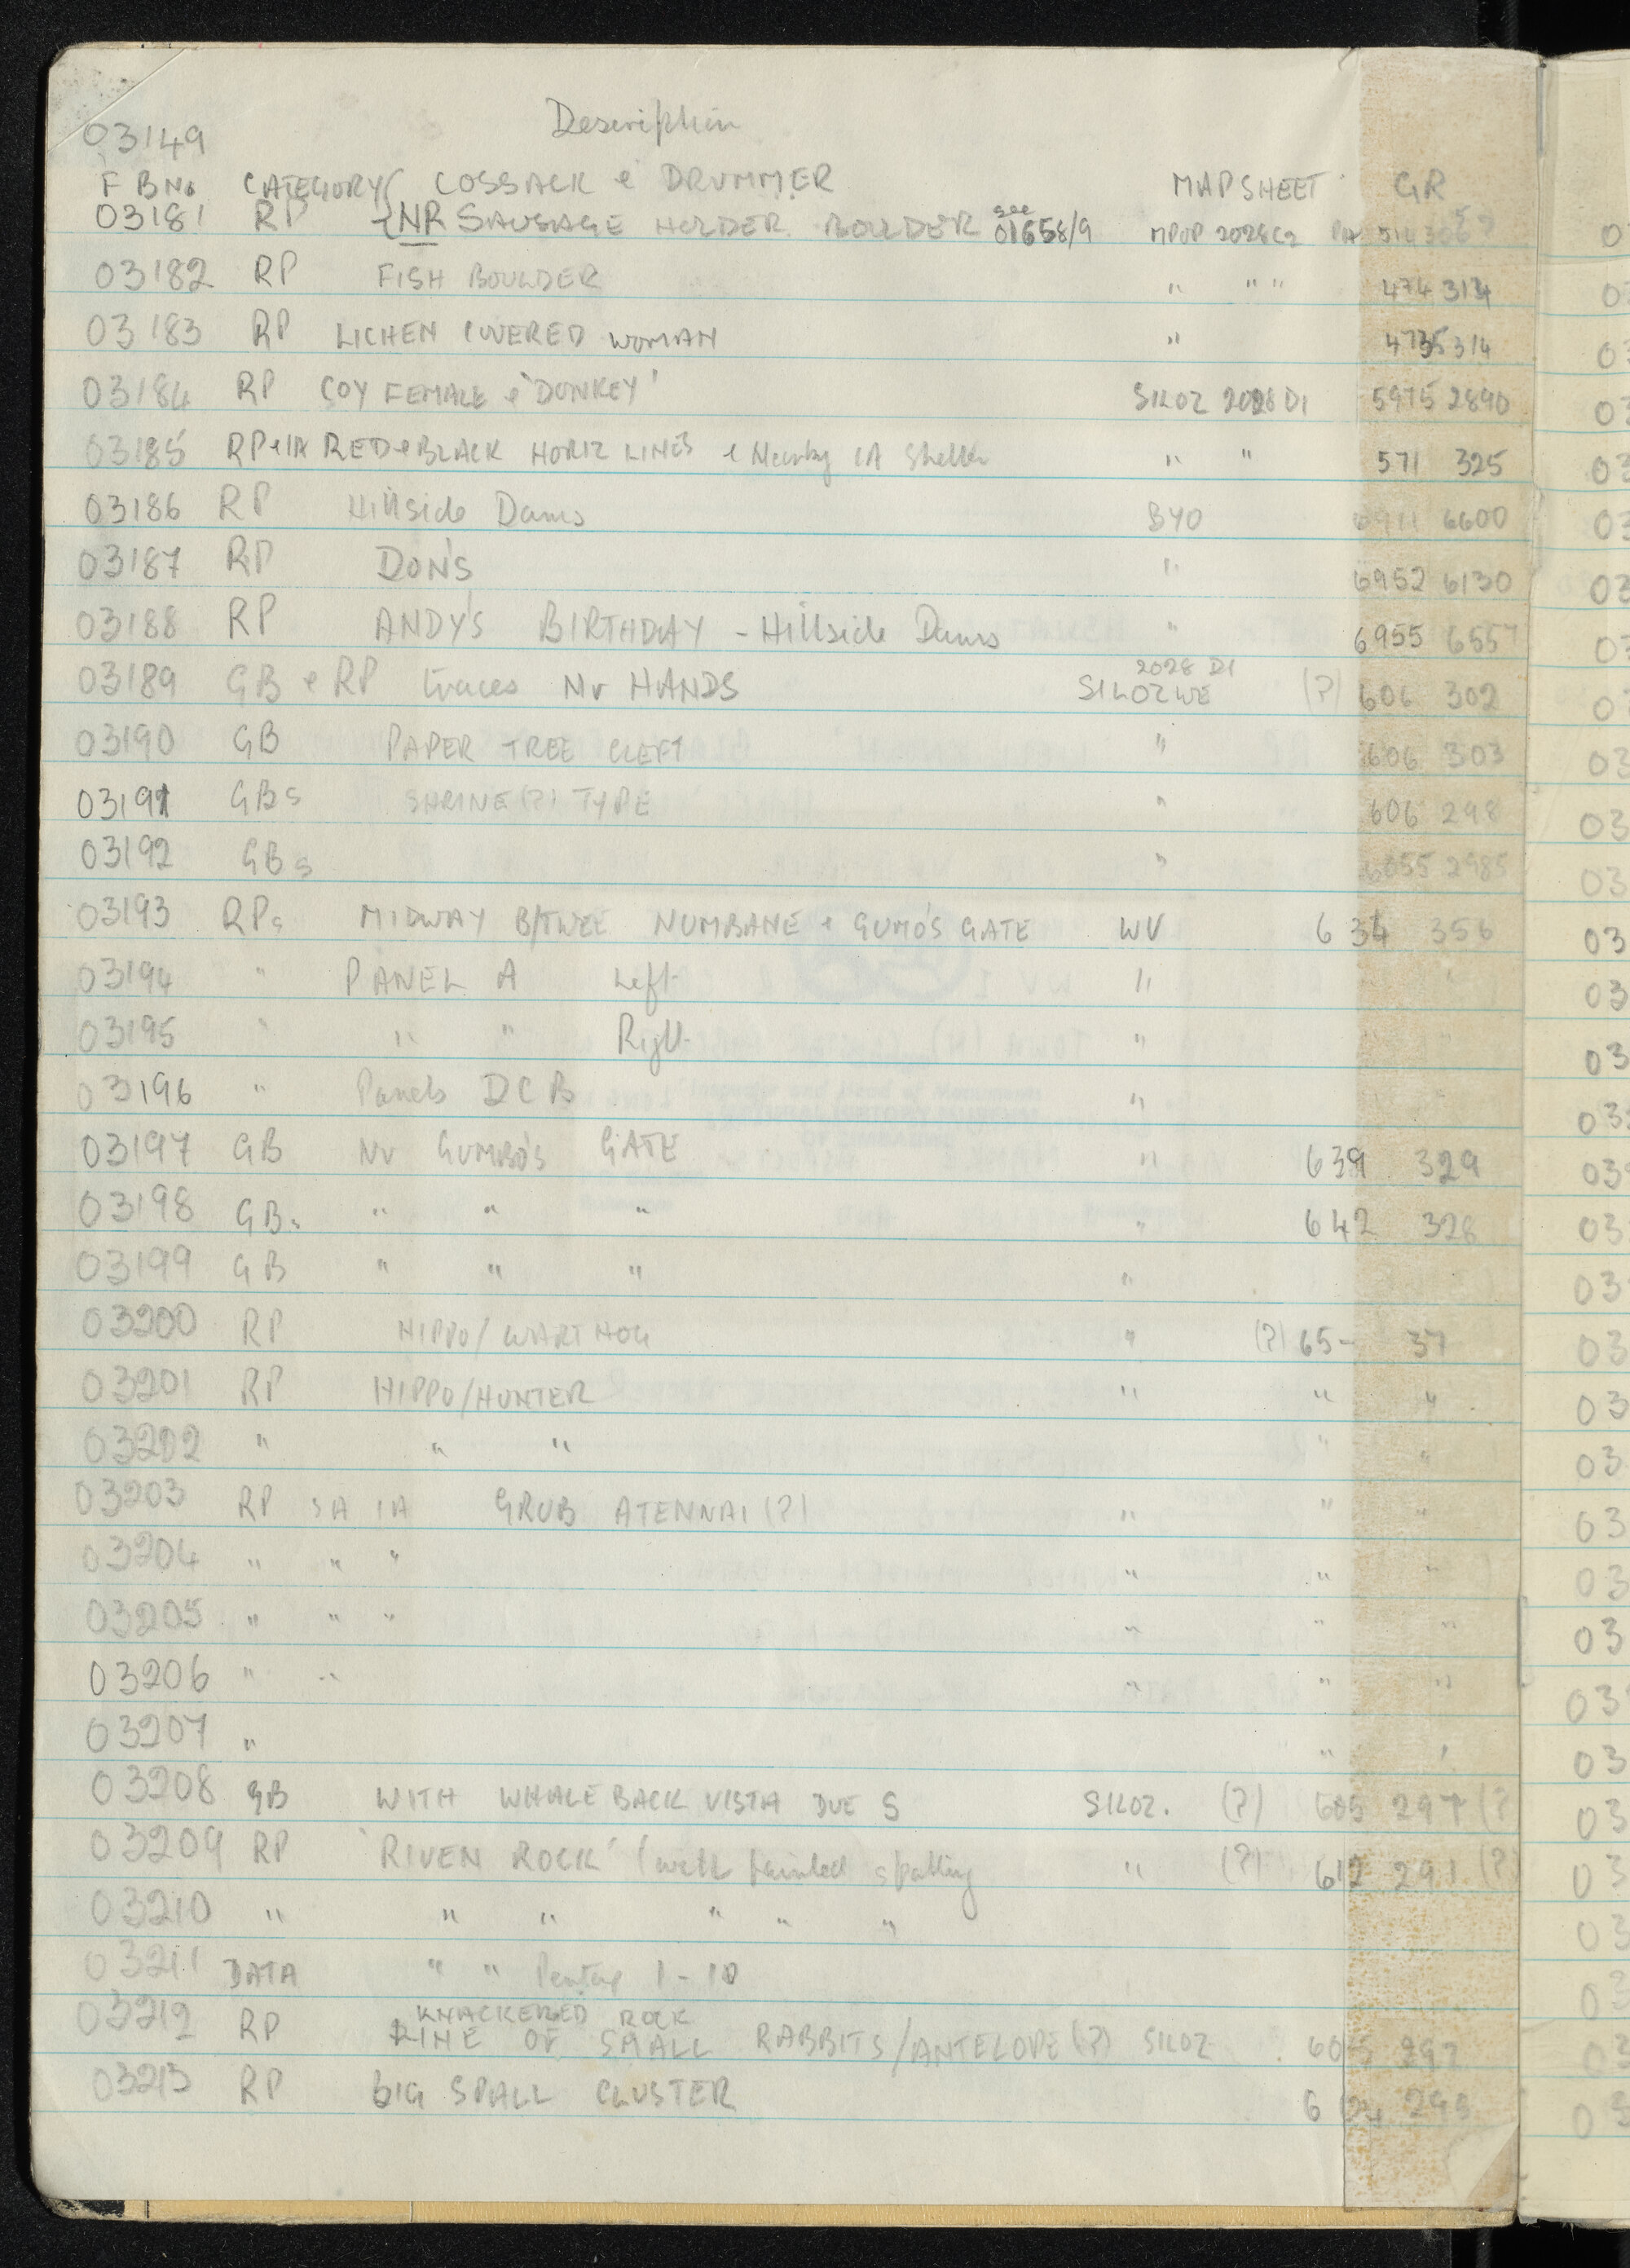 Description
03149
F B No CATEGORY { COSSACK & DRUMMER MAP SHEET GR
03181 RP { NR SAUSAGE HOLDER BOULDER see 01658/9 MPOP 2028 C2
03182 RP FISH BOULDER " " " 474 314
03183 RP LICHEN COVERED WOMAN " 4735 314
03184 RP COY FEMALE & 'DONKEY' SILOZ 2028 D1 5975 2890
03185 RP & IA RED & BLACK HORIZ LINES & Nearby IA Shelter " " 571 325
03186 RP Hillside Dams BYO 6600
03187 RP DON'S " 6952 6130
03188 RP ANDY'S BIRTHDAY - Hillside Dams " 6955 6557
03189 GB & RP traces Nr HANDS SILOZWE 2028 D1 (?) 606 302
03190 GB PAPER TREE CLEFT " 606 303
03191 GBs SHRINE (?) TYPE " 606 298
03192 GBs " 6055 2985
03193 RPs MIDWAY B/TWEE NUMBANE & GUMO'S GATE WV 634 356
03194 " PANEL A Left " "
03195 " " " Right " " "
03196 " Panels D C B " "
03197 GB Nr GUMBO'S GATE " 639 329
03198 GBs " " " " 642 328
03199 GB " " " "
03200 RP HIPPO/WARTHOG " (?) 65- 37
03201 RP HIPPO/HUNTER " " "
03202 " " " " "
03203 RP SA IA GRUB ATENNAI (?) " " "
03204 " " " " " "
03205 " " " " " "
03206 " " " " "
03207 " " "
03208 GB WITH WHALEBACK VISTA DUE S SILOZ. (?) 605 297 (?
03209 RP 'RIVEN ROCK' (with painted spalling " (?) 612 291 (?)
03210 " " " " " "
03211 DATA " " 1-10
03212 RP KNACKERED ROCK
LINE OF SMALL RABBITS/ANTELOPE (?) SILOZ 297
03213 RP BIG SPALL CLUSTER